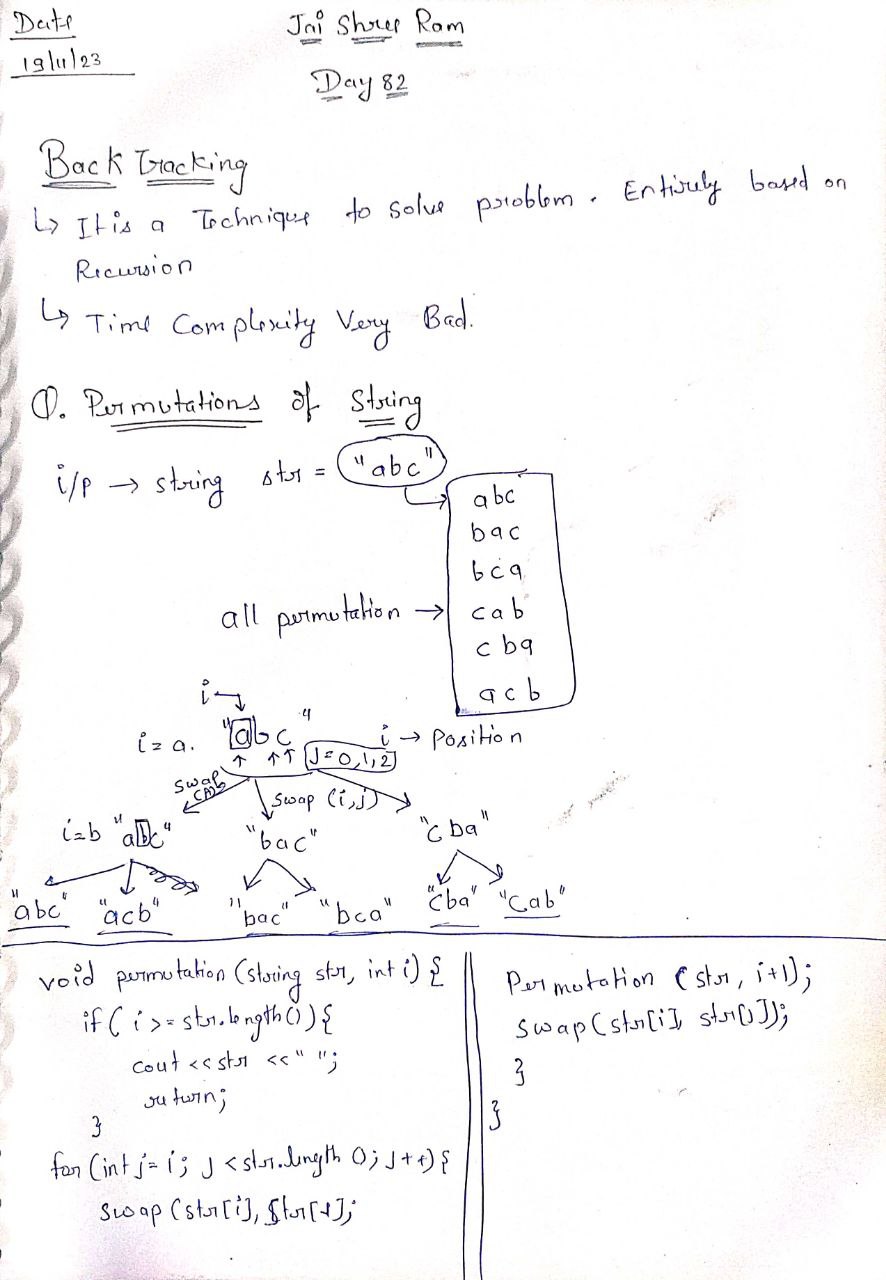 Date
19/11/23
Jai Shree Ram
Day 82
Back Tracking
↳ It is a Technique to solve problem. Entirely based on
Recursion
↳ Time Complexity Very Bad.
Q. Permutations of String
i/p → string str = "abc"
abc
bac
bca
all permutation → cab
cba
acb
i
i = a. "abc" i → Position
J=0,1,2
swap
swap (i,j)
i=b "abc" "bac" "cba"
"abc" "acb" "bac" "bca" "cba" "cab"
void permutation (string str, int i) {
if ( i >= str.length()) {
cout << str << " ";
return;
}
for (int j = i; J < str.length (); J++) {
swap (str[i], str[J];
Permutation (str, i+1);
swap (str[i], str[J]);
}
}